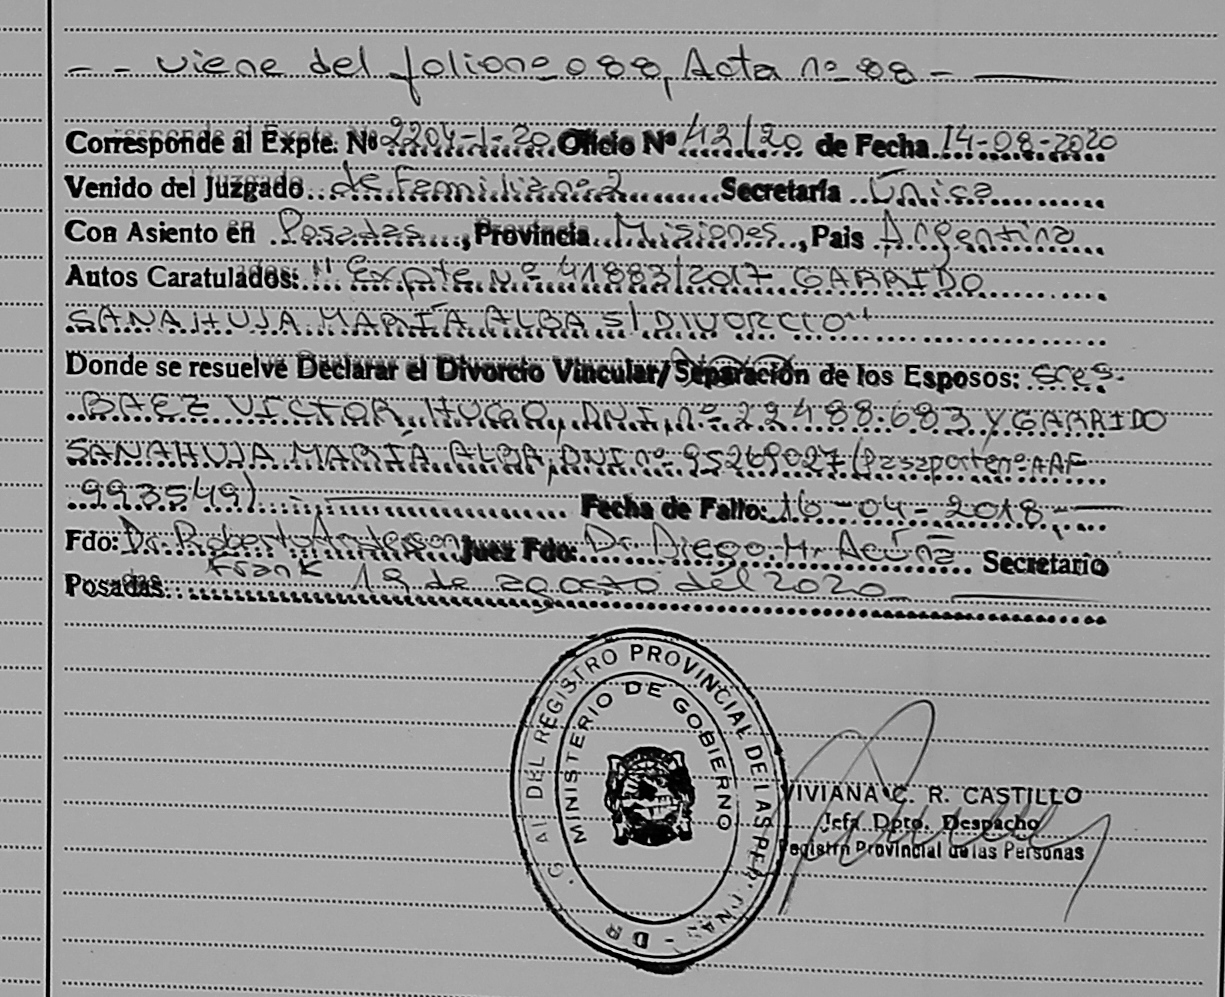 -- viene del folio nº 088, Acta nº 88 -
Corresponde al Expte. Nº 2204-1-20 Oficio Nº 42/20 de Fecha 14-08-2020
Venido del Juzgado de Familia nº 2 Secretaría Única
Con Asiento en Posadas, Provincia Misiones, Pais Argentina
Autos Caratulados: "Expte Nº 41883/2017 GARRIDO
SANAHUJA MARÍA ALBA s/ DIVORCIO"
Donde se resuelve Declarar el Divorcio Vincular/Separación de los Esposos: Sres.
BAEZ VICTOR HUGO, DNI nº 22.488.683 Y GARRIDO
SANAHUJA MARÍA ALBA, DNI nº 95269027 (Pasaporte nº AAF
993549) Fecha de Fallo: 16-04-2018
Fdo: Dr. Roberto Anderson Juez Fdo: Dr. Diego H. Acuña Secretario
Frank
Posadas: 19 de agosto del 2020
DEL REGISTRO PROVINCIAL DE LAS
MINISTERIO DE GOBIERNO
VIVIANA C. R. CASTILLO
Jefa Dpto. Despacho
Registro Provincial de las Personas